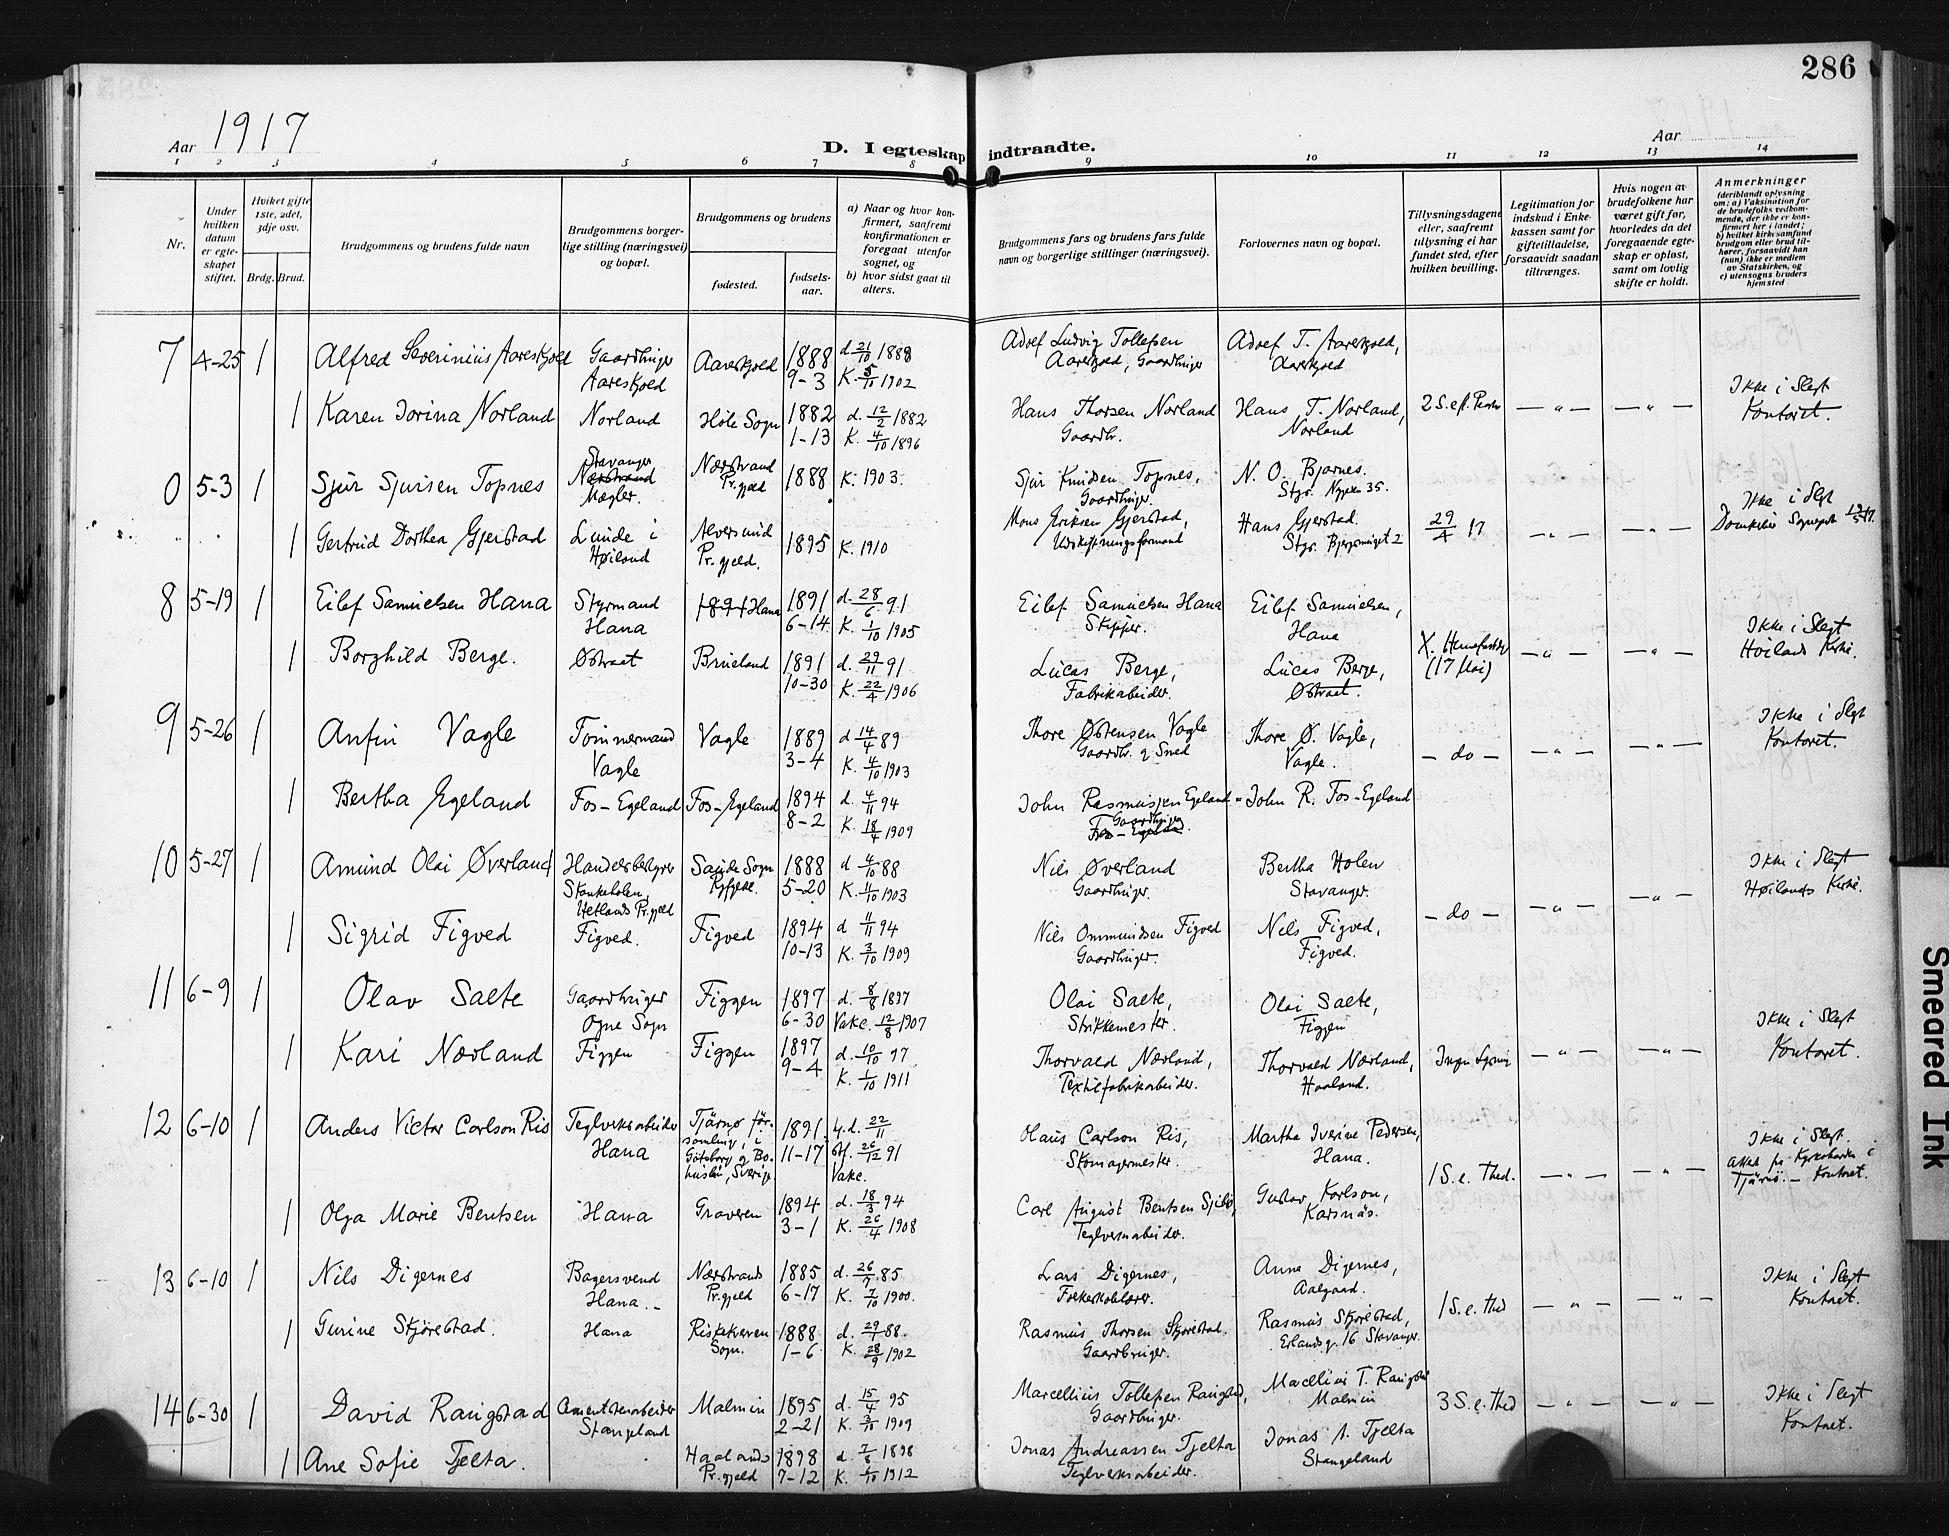 286
Aar 1917
D. I egteskap indtraadte.
Aar
1 2 3 4 5 6 7 8 9 10 11 12 13 14
Nr.
Under hvilken datum er egteskapet stiftet.
Hvilket gifte 1ste, 2det, 3dje osv.
Brdg. Brud.
Brudgommens og brudens fulde navn
Brudgommens borgerlige stilling (næringsvei) og bopæl.
Brudgommens og brudens
fødested.
fødselsaar.
a) Naar og hvor konfirmert, saafremt konfirmationen er foregaat utenfor sognet, og
b) hvor sidst gaat til alters.
Brudgommens fars og brudens fars fulde navn og borgerlige stillinger (næringsvei).
Forlovernes navn og bopæl.
Tillysningsdagene eller, saafremt tillysning ei har fundet sted, efter hvilken bevilling.
Legitimation for indskud i Enkekassen samt for giftetilladelse, forsaavidt saadan tiltrænges.
Hvis nogen av brudefolkene har været gift før, hvorledes da det foregaaende egteskap er opløst, samt om lovlig skifte er holdt.
Anmerkninger
(deriblandt oplysning om: a) Vaksination for de brudefolks vedkommende, der ikke er konfirmert her i landet; b) hvilket kirkesamfund brudgom eller brud tilhører, forsaavidt han (hun) ikke er medlem av Statskirken, og c) utensogns bruders hjemsted
7 4-25 1 Alfred Severinius Aareskjold Gaardbruger Aareskjold Aareskjold 1888 9-3 d. 21/10 1888 K. 5/10 1902 Adolf Ludvig Tollefsen Aareskjold, Gaardbruger Adolf T. Aareskjold, Aareskjold
1 Karen Jorina Norland Norland Høle Sogn 1882 1-13 d. 12/2 1882 K. 4/10 1896 Hans Thorsen Norland Gaardbr. Hans T. Norland, Norland 2 S. e. — „ — — „ — Ikke i Slegt Kontoret.
0 5-3 1 Sjur Sjursen Topnes Stavanger Nærstrand Mægler. Nærstrand Pr.gjeld 1888 K. 1903. Sjur Knudsen Topnes, Gaardbruger. N. O. Bjornes. Stgr. 35.
1 Gertrud Dorthea Gjerstad Lunde i Høiland Alversund Pr.gjeld. 1895 K. 1910 Mons Eriksen Gjerstad, Udskiftningsformand Hans Gjerstad. Stgr. 2 29/4 17 — „ — — „ — Ikke i Slegt
8 5-19 1 Eilef Samuelsen Hana Styrmand Hana 1891 Hana 1891 6-14 d. 28/6 91 K. 1/10 1905 Eilef Samuelsen Hana Skipper. Eilef Samuelsen, Hana
1 Borghild Berge. Østraat Brueland 1891 10-30 d. 29/11 91 K. 22/4 1906 Lucas Berge, Fabrikarbeider. Lucas Berge, Østraat. (17 Mai) — „ — — „ — Ikke i Slegt Høilands Kirke.
9 5-26 1 Anfin Vagle Tømmermand Vagle Vagle 1889 3-4 d. 14/4 89 K. 4/10 1903 Thore Østensen Vagle Gaardbr. og Smed Thore Ø. Vagle, Vagle.
1 Bertha Egeland Fos-Egeland Fos-Egeland 1894 8-2 d. 4/11 94 K. 18/4 1909 John Rasmussen Egeland Gaardbruger Fos-Egeland. John R. Fos-Egeland — do — — „ — — „ — Ikke i Slegt Kontoret.
10 5-27 1 Amund Olai Øverland Handelsbestyrer Stokkeholen, Hetlands Pr.gjeld Saude Sogn Ryfylke. 1888 5-20 d. 4/10 88 K. 4/10 1903 Nils Øverland Gaardbruger. Bertha Holen Stavanger.
1 Sigrid Figved Figved. Figved 1894 10-13 d. 11/11 94 K. 3/10 1909 Nils Ommundsen Figved Gaardbruger. Nils Figved, Figved. — do — — „ — — „ — Ikke i Slegt Høilands Kirke.
11 6-9 1 Olav Salte Gaardbruger Ogne Sogn Figgen 1897 6-30 d. 8/8 1897 Vakc. 12/8 1907 Olai Salte, Strikkemester. Olai Salte, Figgen
1 Kari Norland Figgen Figgen 1897 9-4 d. 10/10 97 K. 1/10 1911 Thorvald Norland, Textilfabrikarbeider. Thorvald Norland, Haaland. — „ — — „ — Ikke i Slegt Kontoret.
12 6-10 1 Anders Victor Carlson Ris Teglverksarbeider Hana Tjärnö församling, i Göteborg og Bohuslän, Sverige 1891 11-17 d. 22/11 26/12 91 Vakc. Olaus Carlson Ris, Skomagermester. Martha Iverine Pedersen, Hana.
1 Olga Marie Bentsen Hana Graveren 1894 3-1 d. 18/3 94 K. 26/4 1908 Carl August Bentsen Teglverksarbeider. Gustav Karlson, Karsnäs. 1 S. e. Thed. — „ — — „ — Ikke i Slegt. Tjärnö. - Kontoret.
13 6-10 1 Nils Digernes Bagersvend Hana. Nærstrands Pr.gjeld 1885 6-17 d. 26/7 85 K. 7/10 1900. Lars Digernes, Folkeskolelærer. Anna Digernes, Aalgaard.
1 Gurine Skjørestad. Hana Riskekverven Sogn. 1888 1-6 d. 29/1 88. K. 28/9 1902 Rasmus Thorsen Skjørestad. Gaardbruger. Rasmus Skjørestad, Erlandsg. 16 Stavanger. 1 S. e. Thed — „ — — „ — Ikke i Slegt Kontoret.
14 6-30 1 David Raugstad Cementstenarbeider Stangeland Malmin 1895 2-21 d. 15/4 95 K. 3/10 1909 Marcellius Tollefsen Raugstad, Gaardbruger. Marcellius T. Raugstad Malmin
1 Ane Sofie Tjelta. Haalands Pr.gjeld 1898 7-12 d. 7/8 1898 K. 1/10 1912 Jonas Andreassen Tjelta Teglverksarbeider. Jonas A. Tjelta Stangeland 3 S. e. Thed — „ — — „ — Ikke i Slegt Kontoret.
Smeared Ink